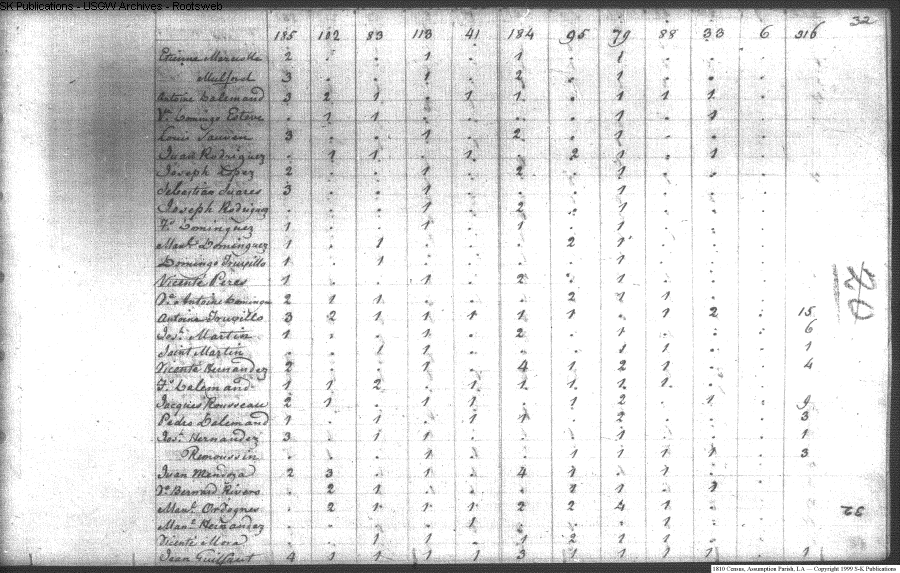 SK Publications - USGW Archives - Rootsweb
32
185 102 83 113 41 184 95 79 88 33 6 316
Etienne 2 . . 1 . 1 . 1 . . .
Mulford 3 . . 1 . 2 . 1 . . .
Antoine Lalemand 3 2 1 . 1 1 . 1 1 1 .
Ve. Domingo Esteve . 1 1 . . . . 1 . 1 .
Louis 3 . . 1 . 2 . 1 . . .
Juan Rodriguez . 1 1 . 1 . 2 1 . 1 .
Joseph Lopez 2 . . 1 . 2 . 1 . . .
Sebastian Suares 3 . . 1 . . . 1 . . .
Joseph Rodriguez . . . 1 . 2 . 1 . . .
Dominguez 1 . . 1 . 1 . 1 . . .
Manl. Dominguez 1 . 1 . . . 2 1 . . .
Domingo Truxillo 1 . 1 . . . . 1 . . .
Vicente Peres 1 . . 1 . 2 . 1 . . .
Ve. Antoine 2 1 1 . . . 2 1 1 . .
Antoine Truxillo 3 2 1 1 1 1 1 . 1 2 . 15
Josh. Martin 1 . . 1 . 2 . 1 . . . 6
Saint Martin . . 1 1 . . . 1 1 . . 1
Vicente Hernandez 2 . . 1 . 4 1 2 1 . . 4
Lalemand 1 1 2 . 1 1 1 1 1 . .
Jacques Rousseau 2 1 . 1 1 . 1 2 . 1 . 9
Pedro Lalemand 1 . 1 1 1 1 . 2 . . . 3
Josh. Hernandez 3 . 1 1 . . . 1 . . . 1
Remoussin . . . 1 . . 1 1 1 1 . 3
Juan Mendoza 2 3 . 1 . 4 1 . 1 . .
Ve. Bernard Rivero . 2 1 . . . 1 1 . 1 .
Manl. Ordognes . 2 1 1 1 2 2 4 1 . .
Manl. Hernandez . . . . 1 . . . 1 . .
Vicente Mora . . 1 1 . 1 2 1 1 . .
Jean 4 1 1 1 1 3 1 1 1 1 . 1
20
32
1810 Census, Assumption Parish, LA — Copyright 1999 S-K Publications